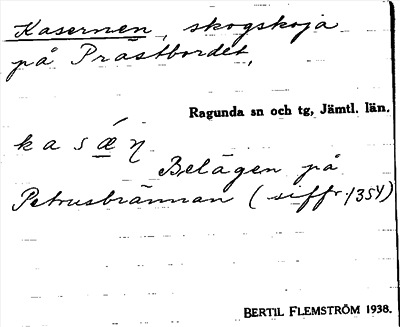 Kasernen, skogskoja
på Prästbordet,
Ragunda sn och tg, Jämtl. län.
kasǽƞ
Belägen på
Petrusbrännan (siffr. 1354)
BERTIL FLEMSTRÖM 1938.